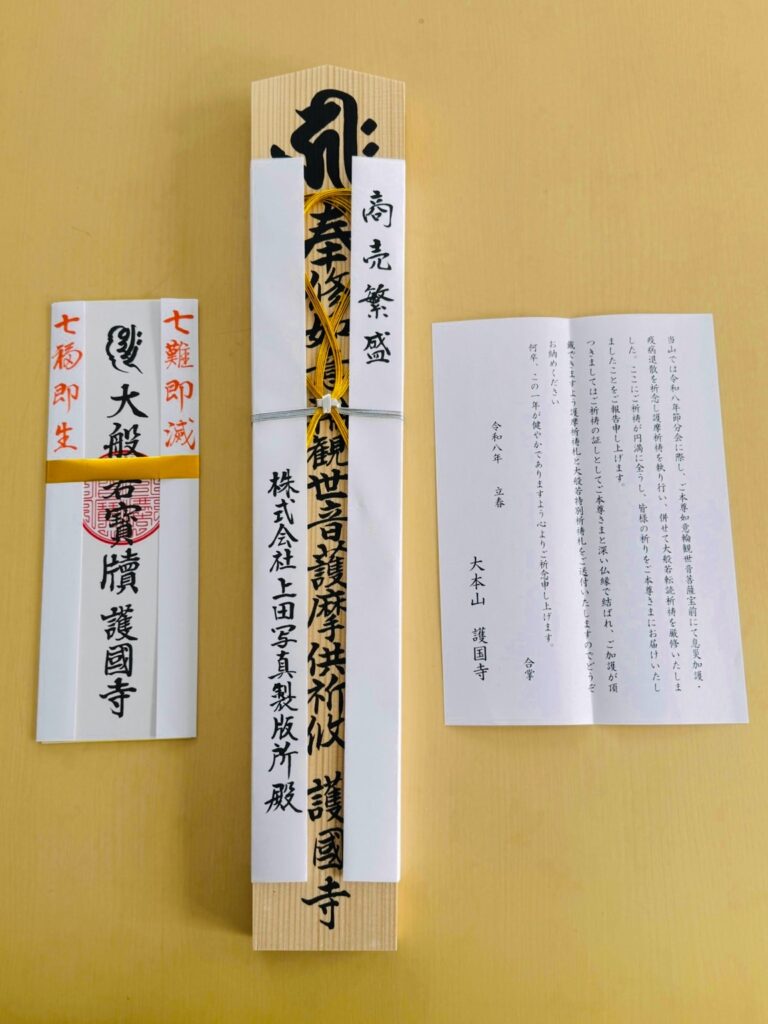 七難即滅
大般若寶牘 護國寺
七福即生
商売繁盛
奉修如意観世音護摩供祈攸 護國寺
株式会社上田写真製版所殿
当山では令和八年節分会に際し、ご本尊如意輪観世音菩薩宝前にて息災加護・
疫病退散を祈念し護摩祈祷を執り行い、併せて大般若転読祈祷を厳修いたしま
した。ここにご祈祷が円満に全うし、皆様の祈りをご本尊さまにお届けいたし
ましたことをご報告申し上げます。
つきましてはご祈祷の証しとしてご本尊さまと深い仏縁で結ばれ、ご加護が頂
戴できますよう護摩祈祷札と大般若特別祈祷札をご送付いたしますのでどうぞ
お納めください
何卒、この一年が健やかでありますよう心よりご祈念申し上げます。
合掌
令和八年 立春
大本山 護国寺